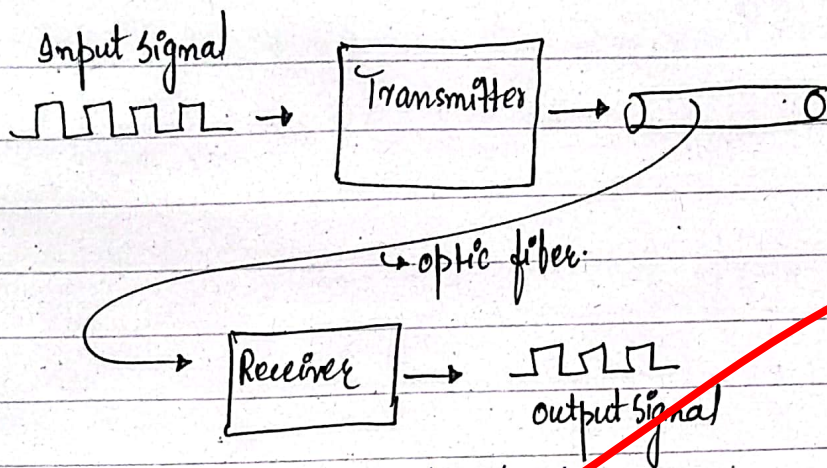 Input Signal
Transmitter
optic fiber.
Receiver
output Signal